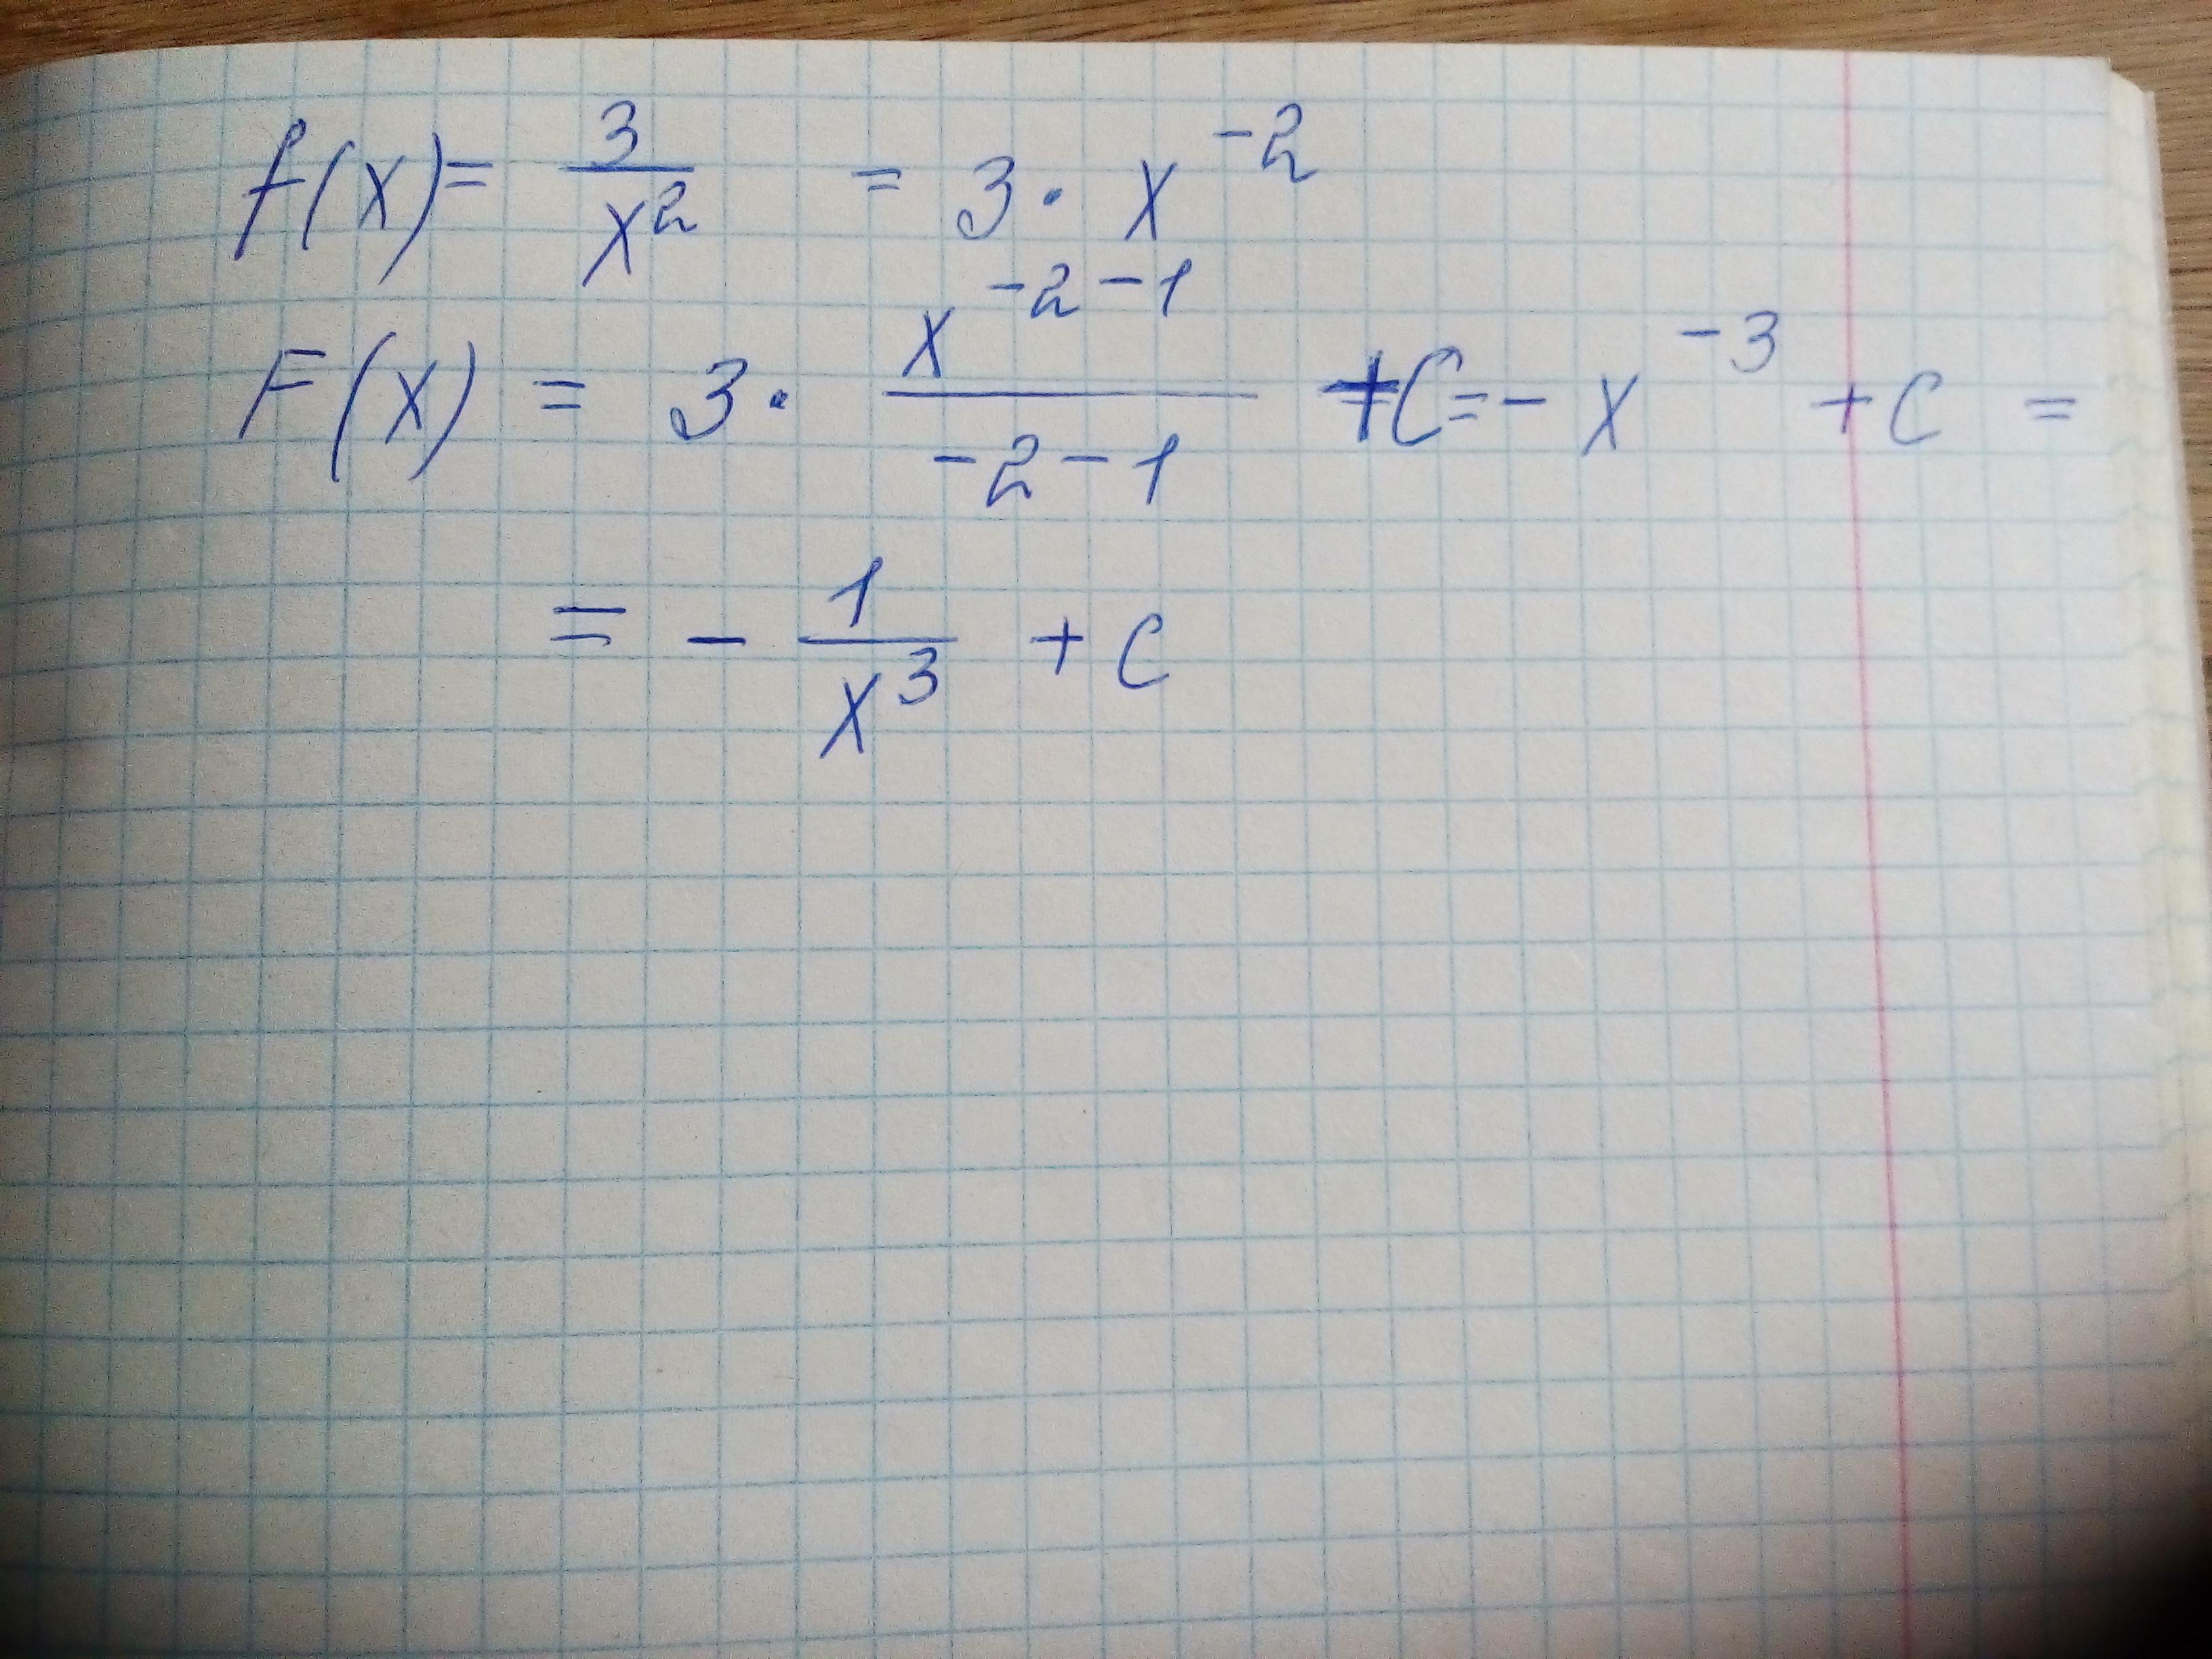 f(x) = 3/x² = 3 · x⁻²
F(x) = 3 · x⁻²⁻¹/(-2-1) + C = - x⁻³ + c =
= - 1/x³ + c